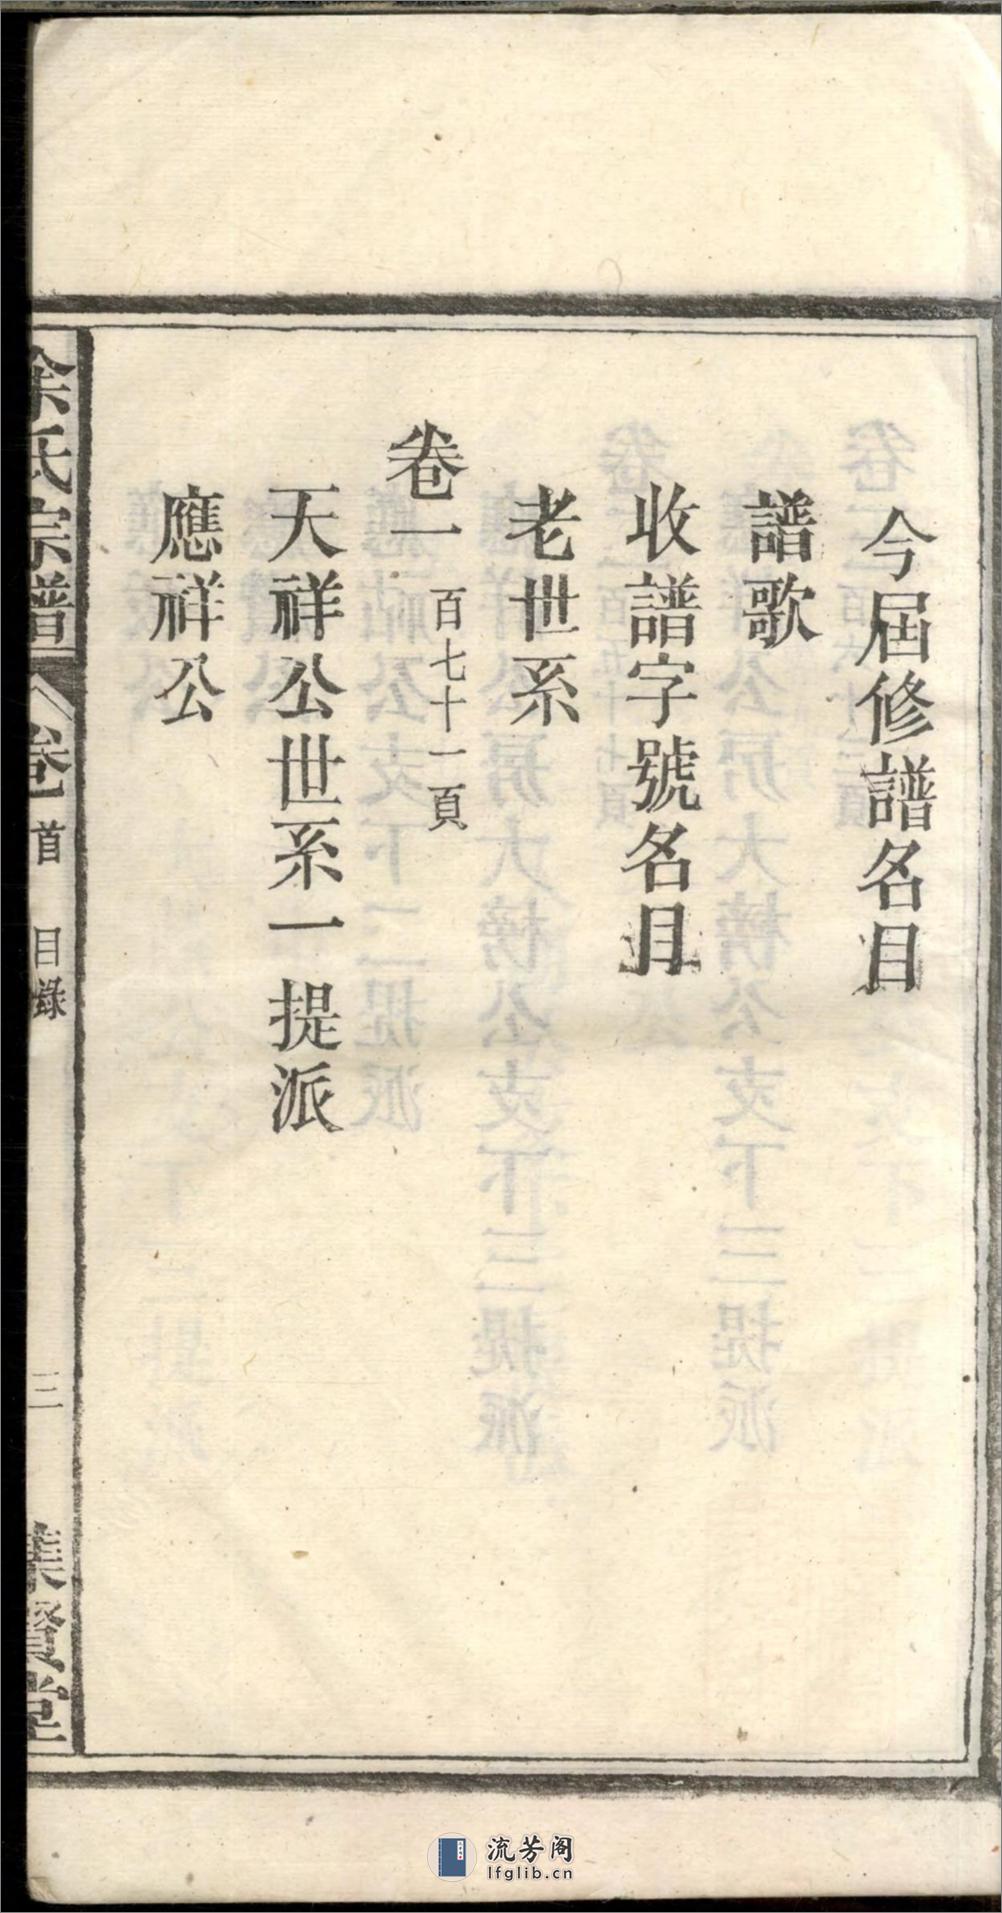 今屆修譜名目
譜歌
收譜字號名目
老世系
卷一 百七十一頁
天祥公世系一提派
應祥公
氏宗譜 卷首 目錄 三 堂
流芳阁
lfglib.cn